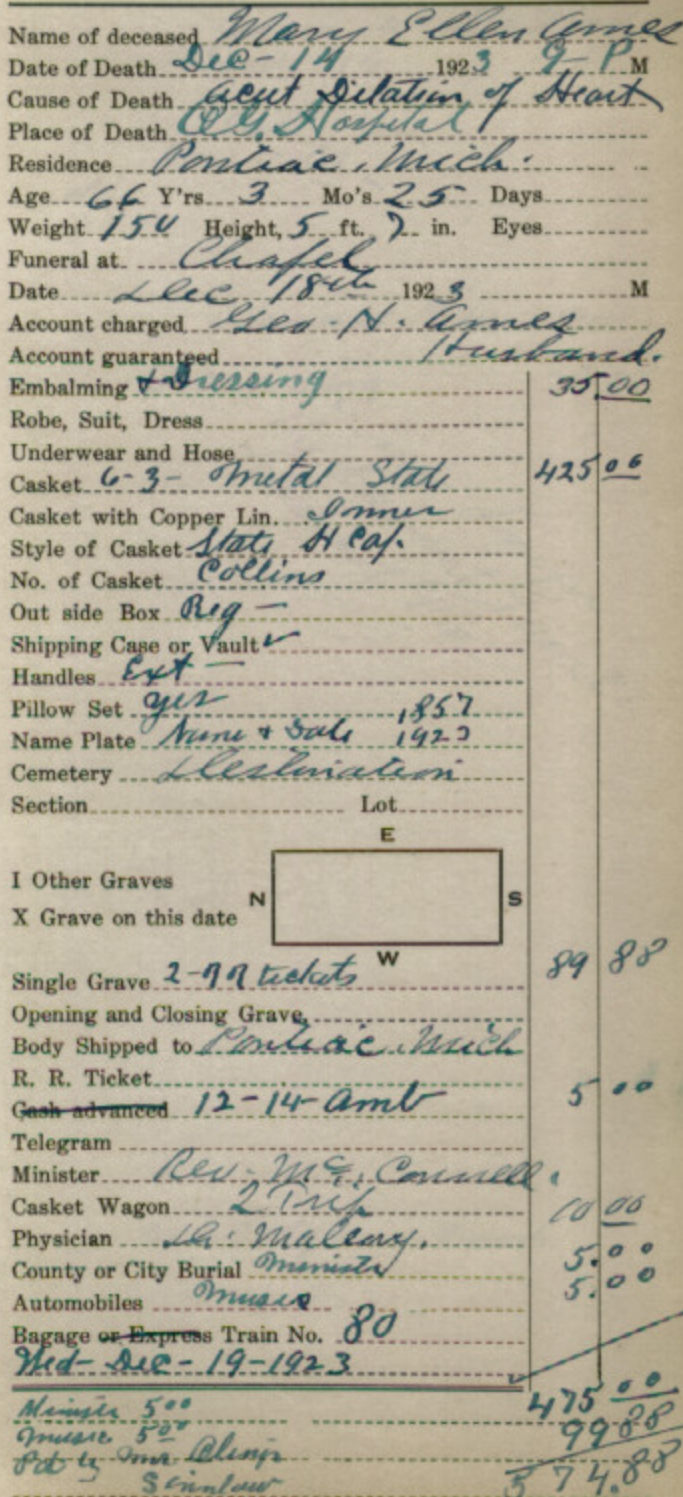 Name of deceased Mary Ellen Ames
Date of Death Dec - 14 1923 9 - P M
Cause of Death Acut Dilation of Heart
Place of Death O.G. Hospital
Residence Pontiac, Mich.
Age 66 Y'rs 3 Mo's 25 Days
Weight 150 Height, 5 ft. 7 in. Eyes
Funeral at Chapel
Date Dec 18th 1923 M
Account charged Geo. H. Ames
Account guaranteed Husband.
Embalming & Dressing 35.00
Robe, Suit, Dress
Underwear and Hose
Casket 6-3- Metal State 425 00
Casket with Copper Lin. Inner
Style of Casket State H Cap.
No. of Casket Collins
Out side Box Reg -
Shipping Case or Vault ✓
Handles Ext -
Pillow Set yes 1857
Name Plate Name & Date 1923
Cemetery Destination
Section Lot
E
I Other Graves
N S
X Grave on this date
W
Single Grave 2-RR tickets 89 88
Opening and Closing Grave
Body Shipped to Pontiac Mich
R. R. Ticket
Cash advanced 12-14- Amb 5 00
Telegram
Minister Rev. McConnell.
Casket Wagon 2 Trip 10 00
Physician Dr.
County or City Burial Minister 5.00
Automobiles Music 5.00
Bagage or Express Train No. 80
Wed- Dec - 19-1923
475 00
Minister 5 00
99 88
music 5 00
Pd by Mr.
574.88
Soninlaw